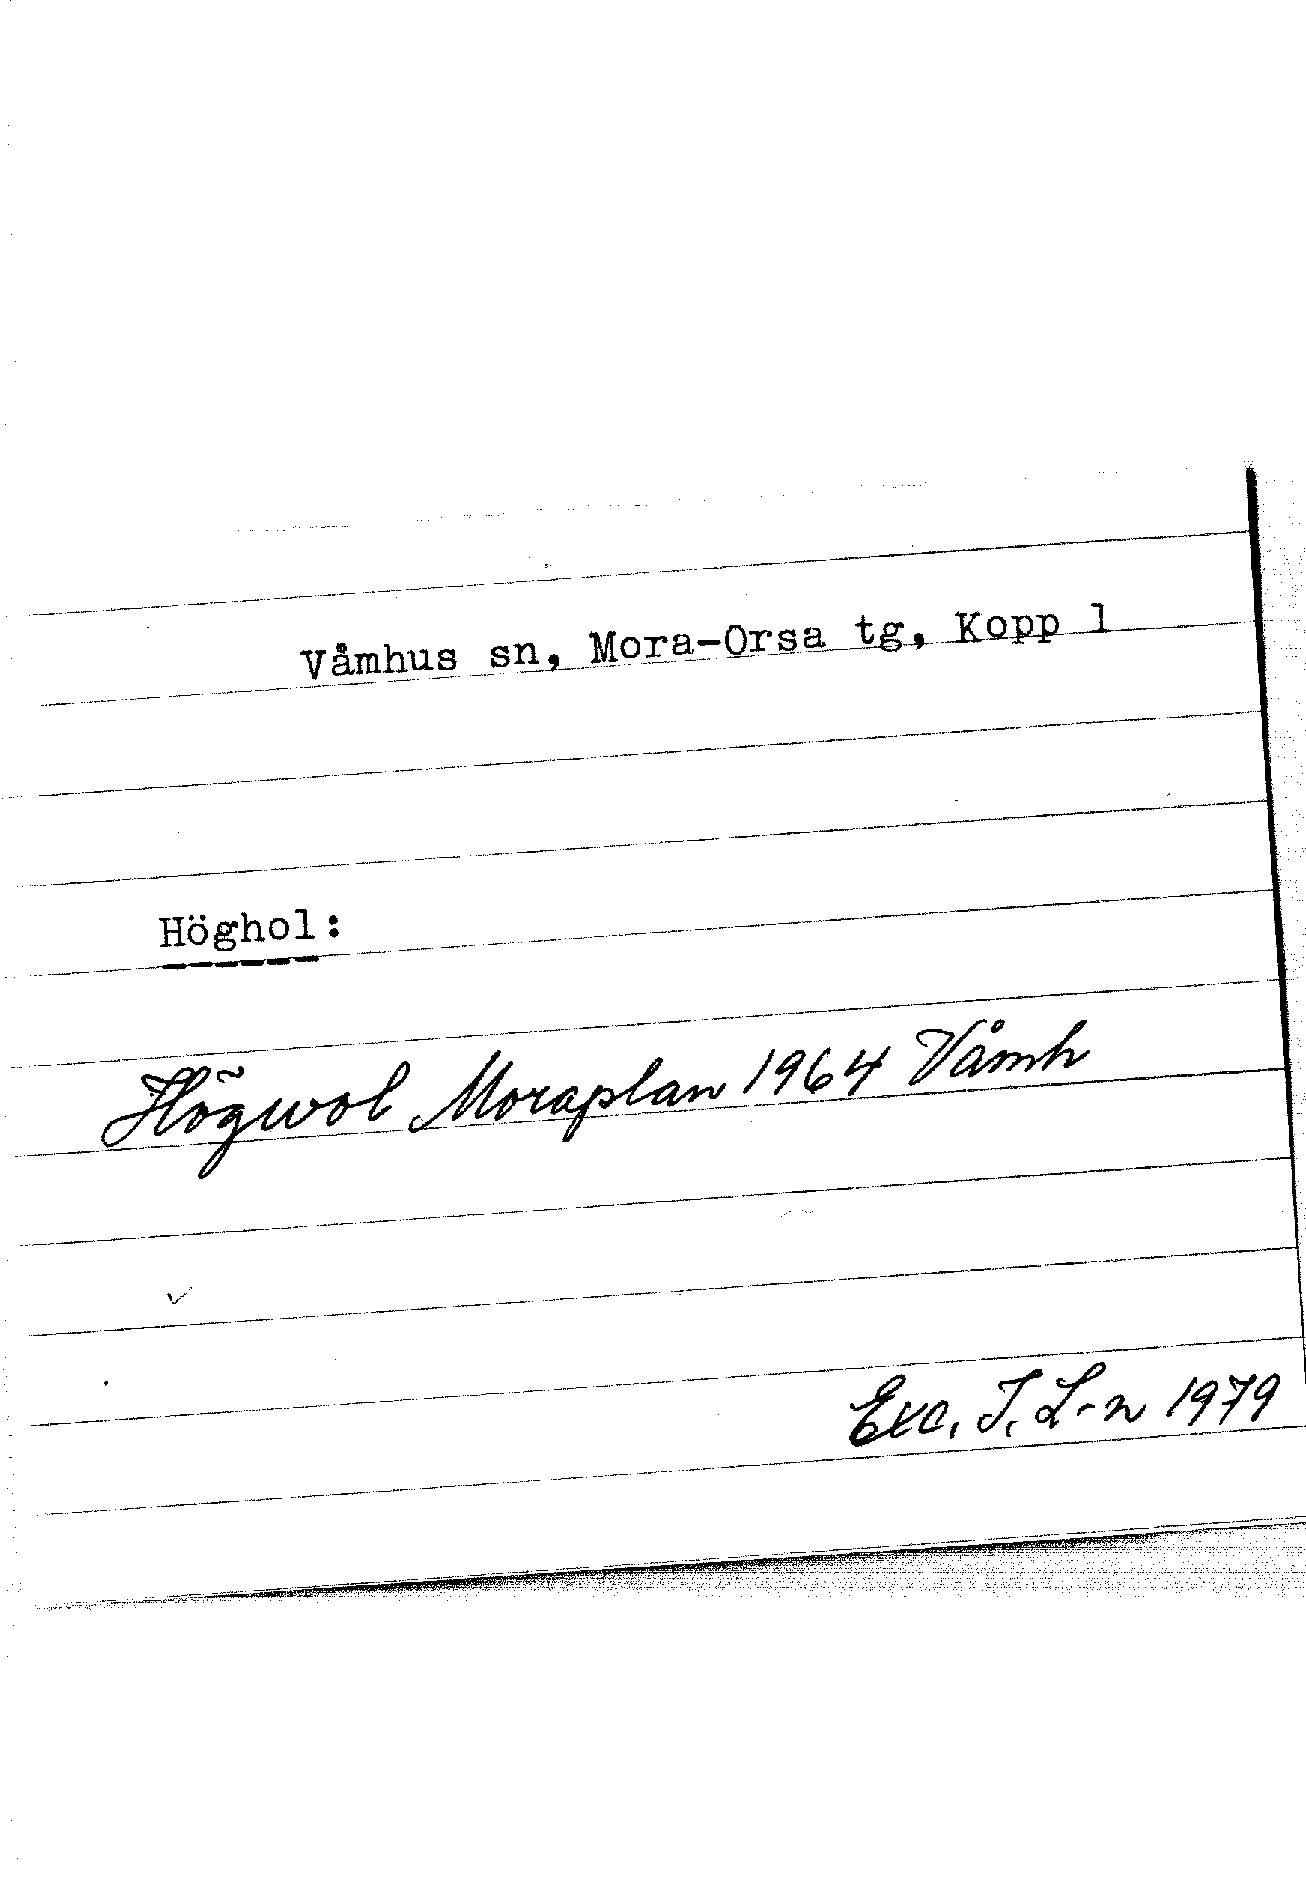 Våmhus sn, Mora-Orsa tg, Kopp 1
Höghol:
Högwol Moraplan 1964 Våmh
Exc. I. L-n 1979